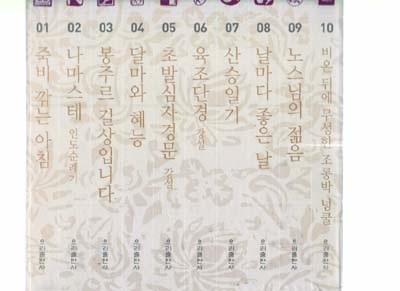 01
죽비 깎는 아침
우리출판사
02
나마스테 인도순례기
우리출판사
03
봉주르 길상입니다
우리출판사
04
달마와 혜능
우리출판사
05
초발심자경문 강설
우리출판사
06
육조단경 강설
우리출판사
07
산승일기
우리출판사
08
날마다 좋은 날
우리출판사
09
노스님의 젊음
우리출판사
10
비온 뒤에 무성한 조롱박 넝쿨
우리출판사